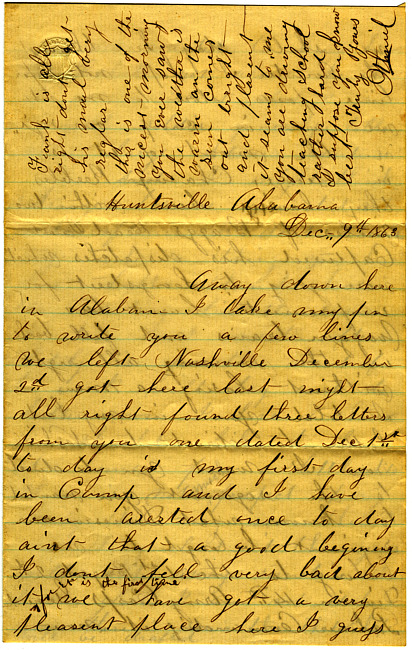 Frank is all
right dont get
his mail very
reglar
this is one of the
nicest morning
you ever saw
the weather is
warm an the
sun comes
out bright
and plesent
it seams to me
you are driving
teaching school
rather hard
I suppose you know
best Truly Yours
Othniel
Huntsville Alabama
Dec,, 9th 1863
Away down here
in Alabam I take my pen
to write you a few lines
we left Nashville December
2nd got here last night
all right found three letters
from you one dated Dec 1st
to day is my first day
in Camp and I have
been arested once to day
aint that a good begining
I dont fell very bad about
it for it is the first time
we have got a very
plesent place here I guess